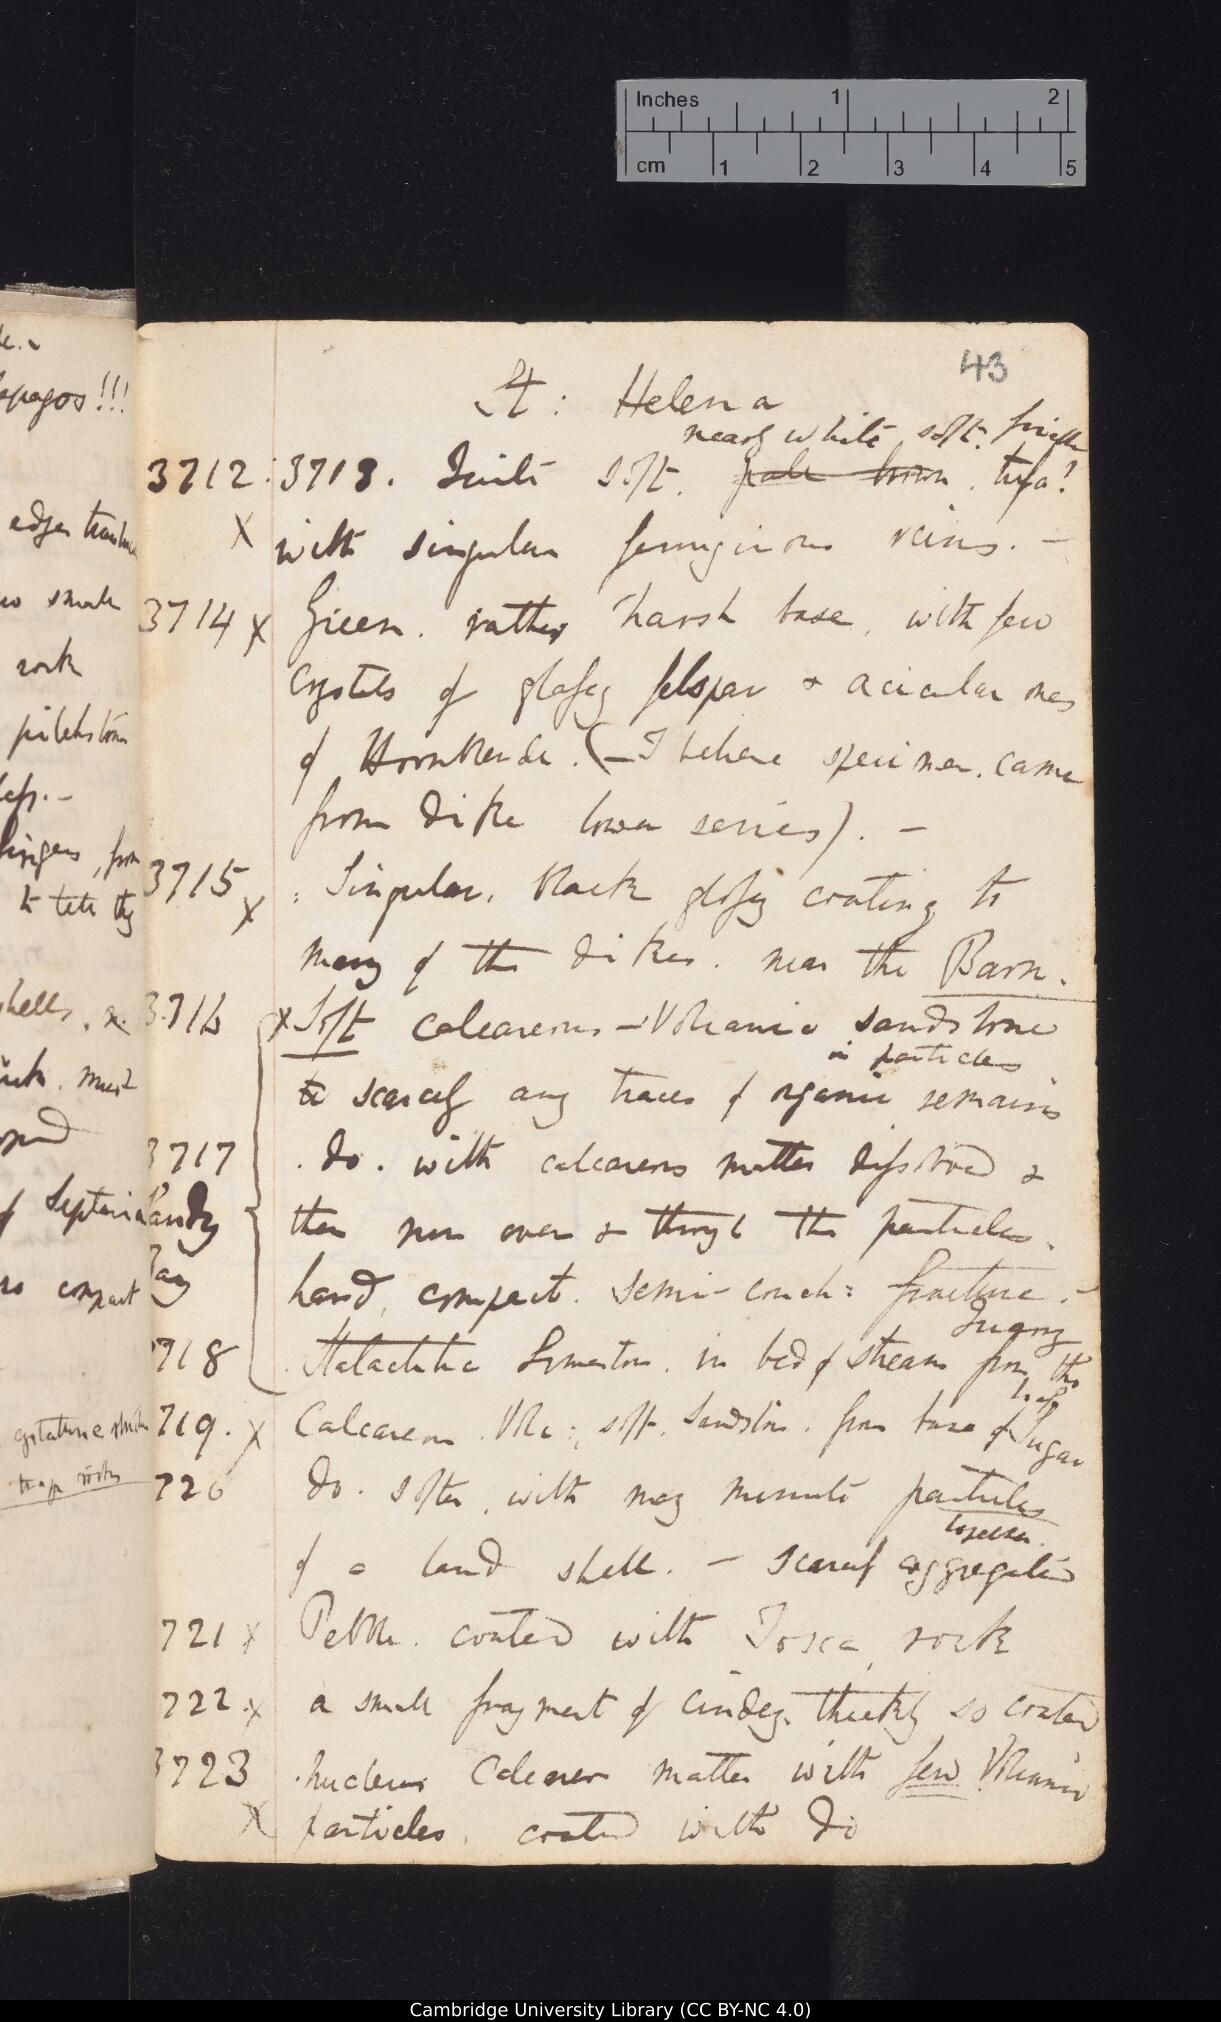 Inches 1 2
cm 1 2 3 4 5
43
St: Helena
nearly white soft. friable
3712: 3713. Quite soft. pale brown. tufa?
X with singular ferruginous veins. —
3714 X Green. rather harsh base, with few
crystals of glassy felspar & acicular ones
of Hornblende. (— I believe specimen. came
from dike lower series). —
3715 X : Singular. black glossy coating to
many of the dikes. near the Barn.
3716 X Soft calcareous — Volcanic sandstone
in particles
scarcely any traces of organic remains
3717 . do. with calcareous matter dissolved &
Sandy
then run over & through the particles.
Bay
hard, compact. semi-conch: fracture. —
Quarry
718 Stalactitic Limestone. in bed of stream from the
719. X Calcareous Vol:, soft. Sandstone. from base of Sugar
Loaf
720 do. softer, with many minute particles
of a land shell. — scarcely aggregated
721 X Pebble. coated with Tosca, rock
722. X a small fragment of cindery. thickly so coated
3723 . nucleus Calcareous matter with few Volcanic
X particles. coated with Do
apagos!!!
edges
small
rock
pitchstone
from
to tell they
shells.
must
of Septaria
compact
trap rocks
Cambridge University Library (CC BY-NC 4.0)